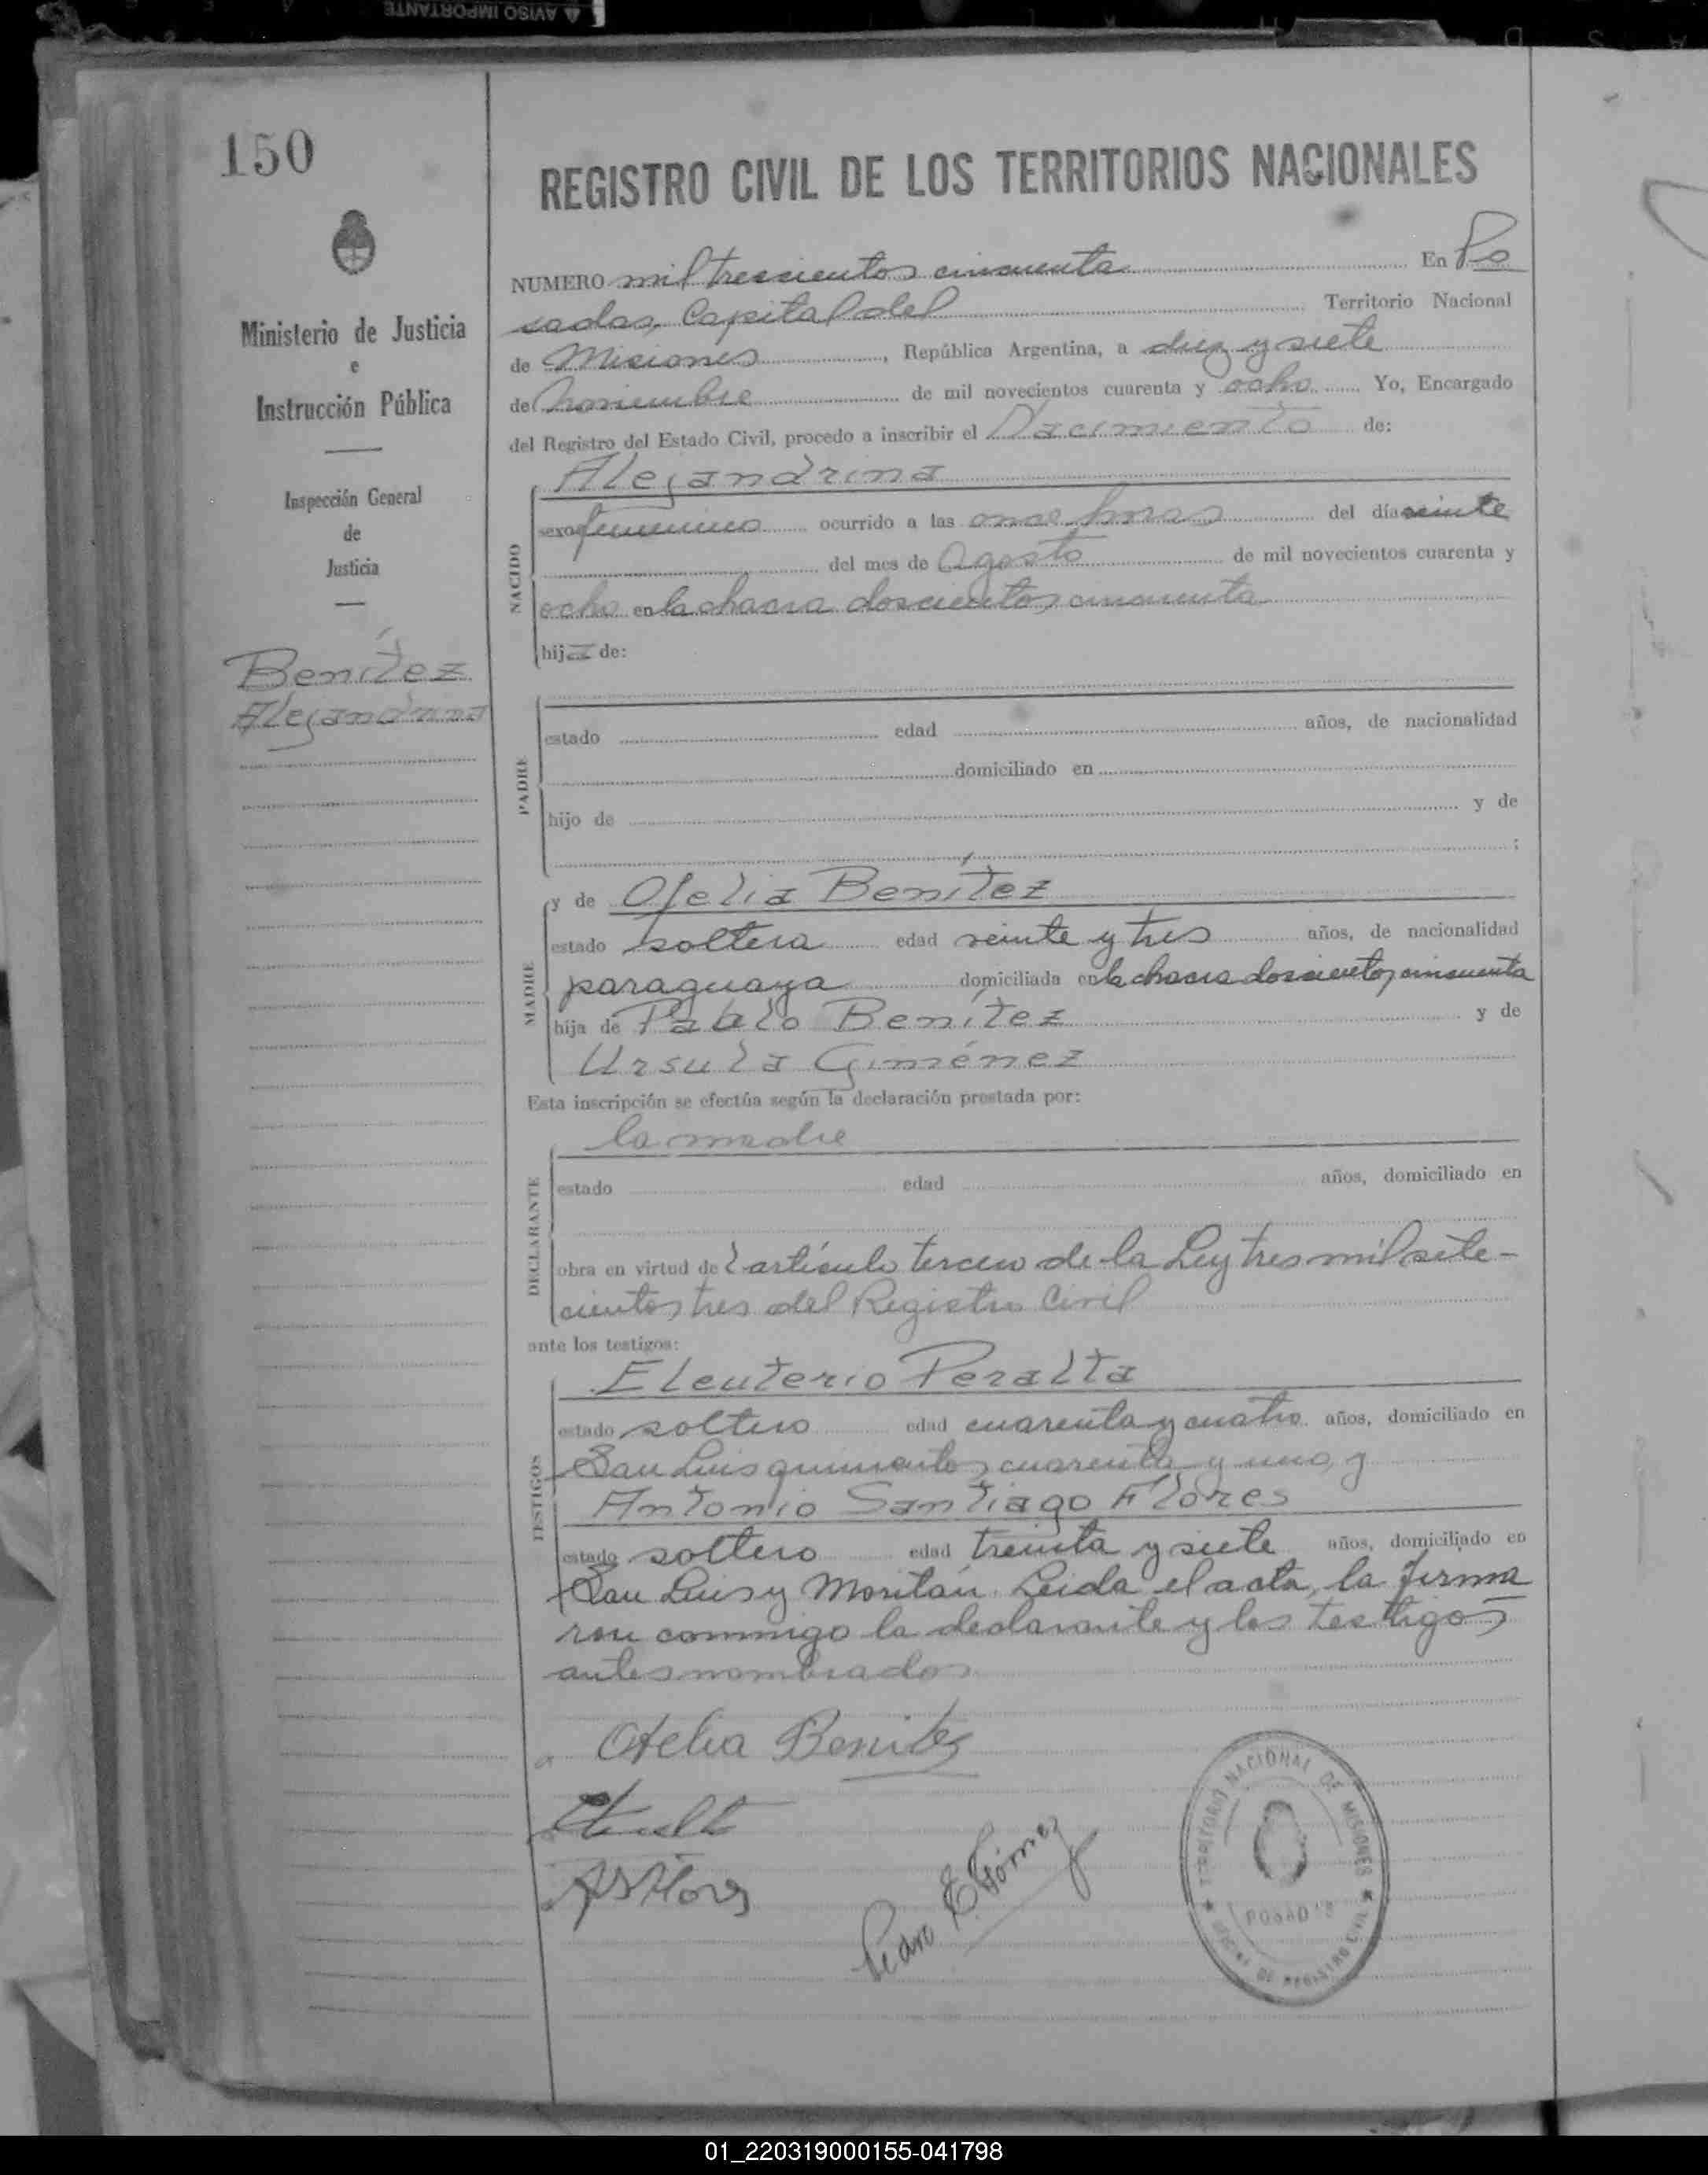 AVISO IMPORTANTE
150
REGISTRO CIVIL DE LOS TERRITORIOS NACIONALES
Ministerio de Justicia
e
Instrucción Pública
Inspección General
de
Justicia
Benítez
Alejandrina
NUMERO mil trescientos cincuenta En Po
sadas, Capital del Territorio Nacional
de Misiones, República Argentina, a diez y siete
de Noviembre de mil novecientos cuarenta y ocho Yo, Encargado
del Registro del Estado Civil, procedo a inscribir el Nacimiento de:
NACIDO
Alejandrina
sexo femenino ocurrido a las once horas del día veinte
del mes de Agosto de mil novecientos cuarenta y
ocho en la chacra doscientos cincuenta
hija de:
PADRE
estado edad años, de nacionalidad
domiciliado en
hijo de y de
;
MADRE
y de Ofelia Benítez
estado soltera edad veinte y tres años, de nacionalidad
paraguaya domiciliada en la chacra doscientos cincuenta
hija de Pablo Benítez y de
Ursula Giménez
Esta inscripción se efectúa según la declaración prestada por:
DECLARANTE
la madre
estado edad años, domiciliado en
obra en virtud del artículo tercero de la Ley tres mil sete-
cientos tres del Registro Civil
ante los testigos:
TESTIGOS
Eleuterio Peralta
estado soltero edad cuarenta y cuatro años, domiciliado en
San Luis quinientos cuarenta y uno, y
Antonio Santiago Flores
estado soltero edad treinta y siete años, domiciliado en
San Luis y Moritán. Leida el acta, la firma
ron conmigo la declarante y los testigos
antes nombrados
Ofelia Benitez
ASFlores
E Gómez
TERRITORIO NACIONAL DE MISIONES
POSADAS
OFICINA DE REGISTRO CIVIL
01_220319000155-041798